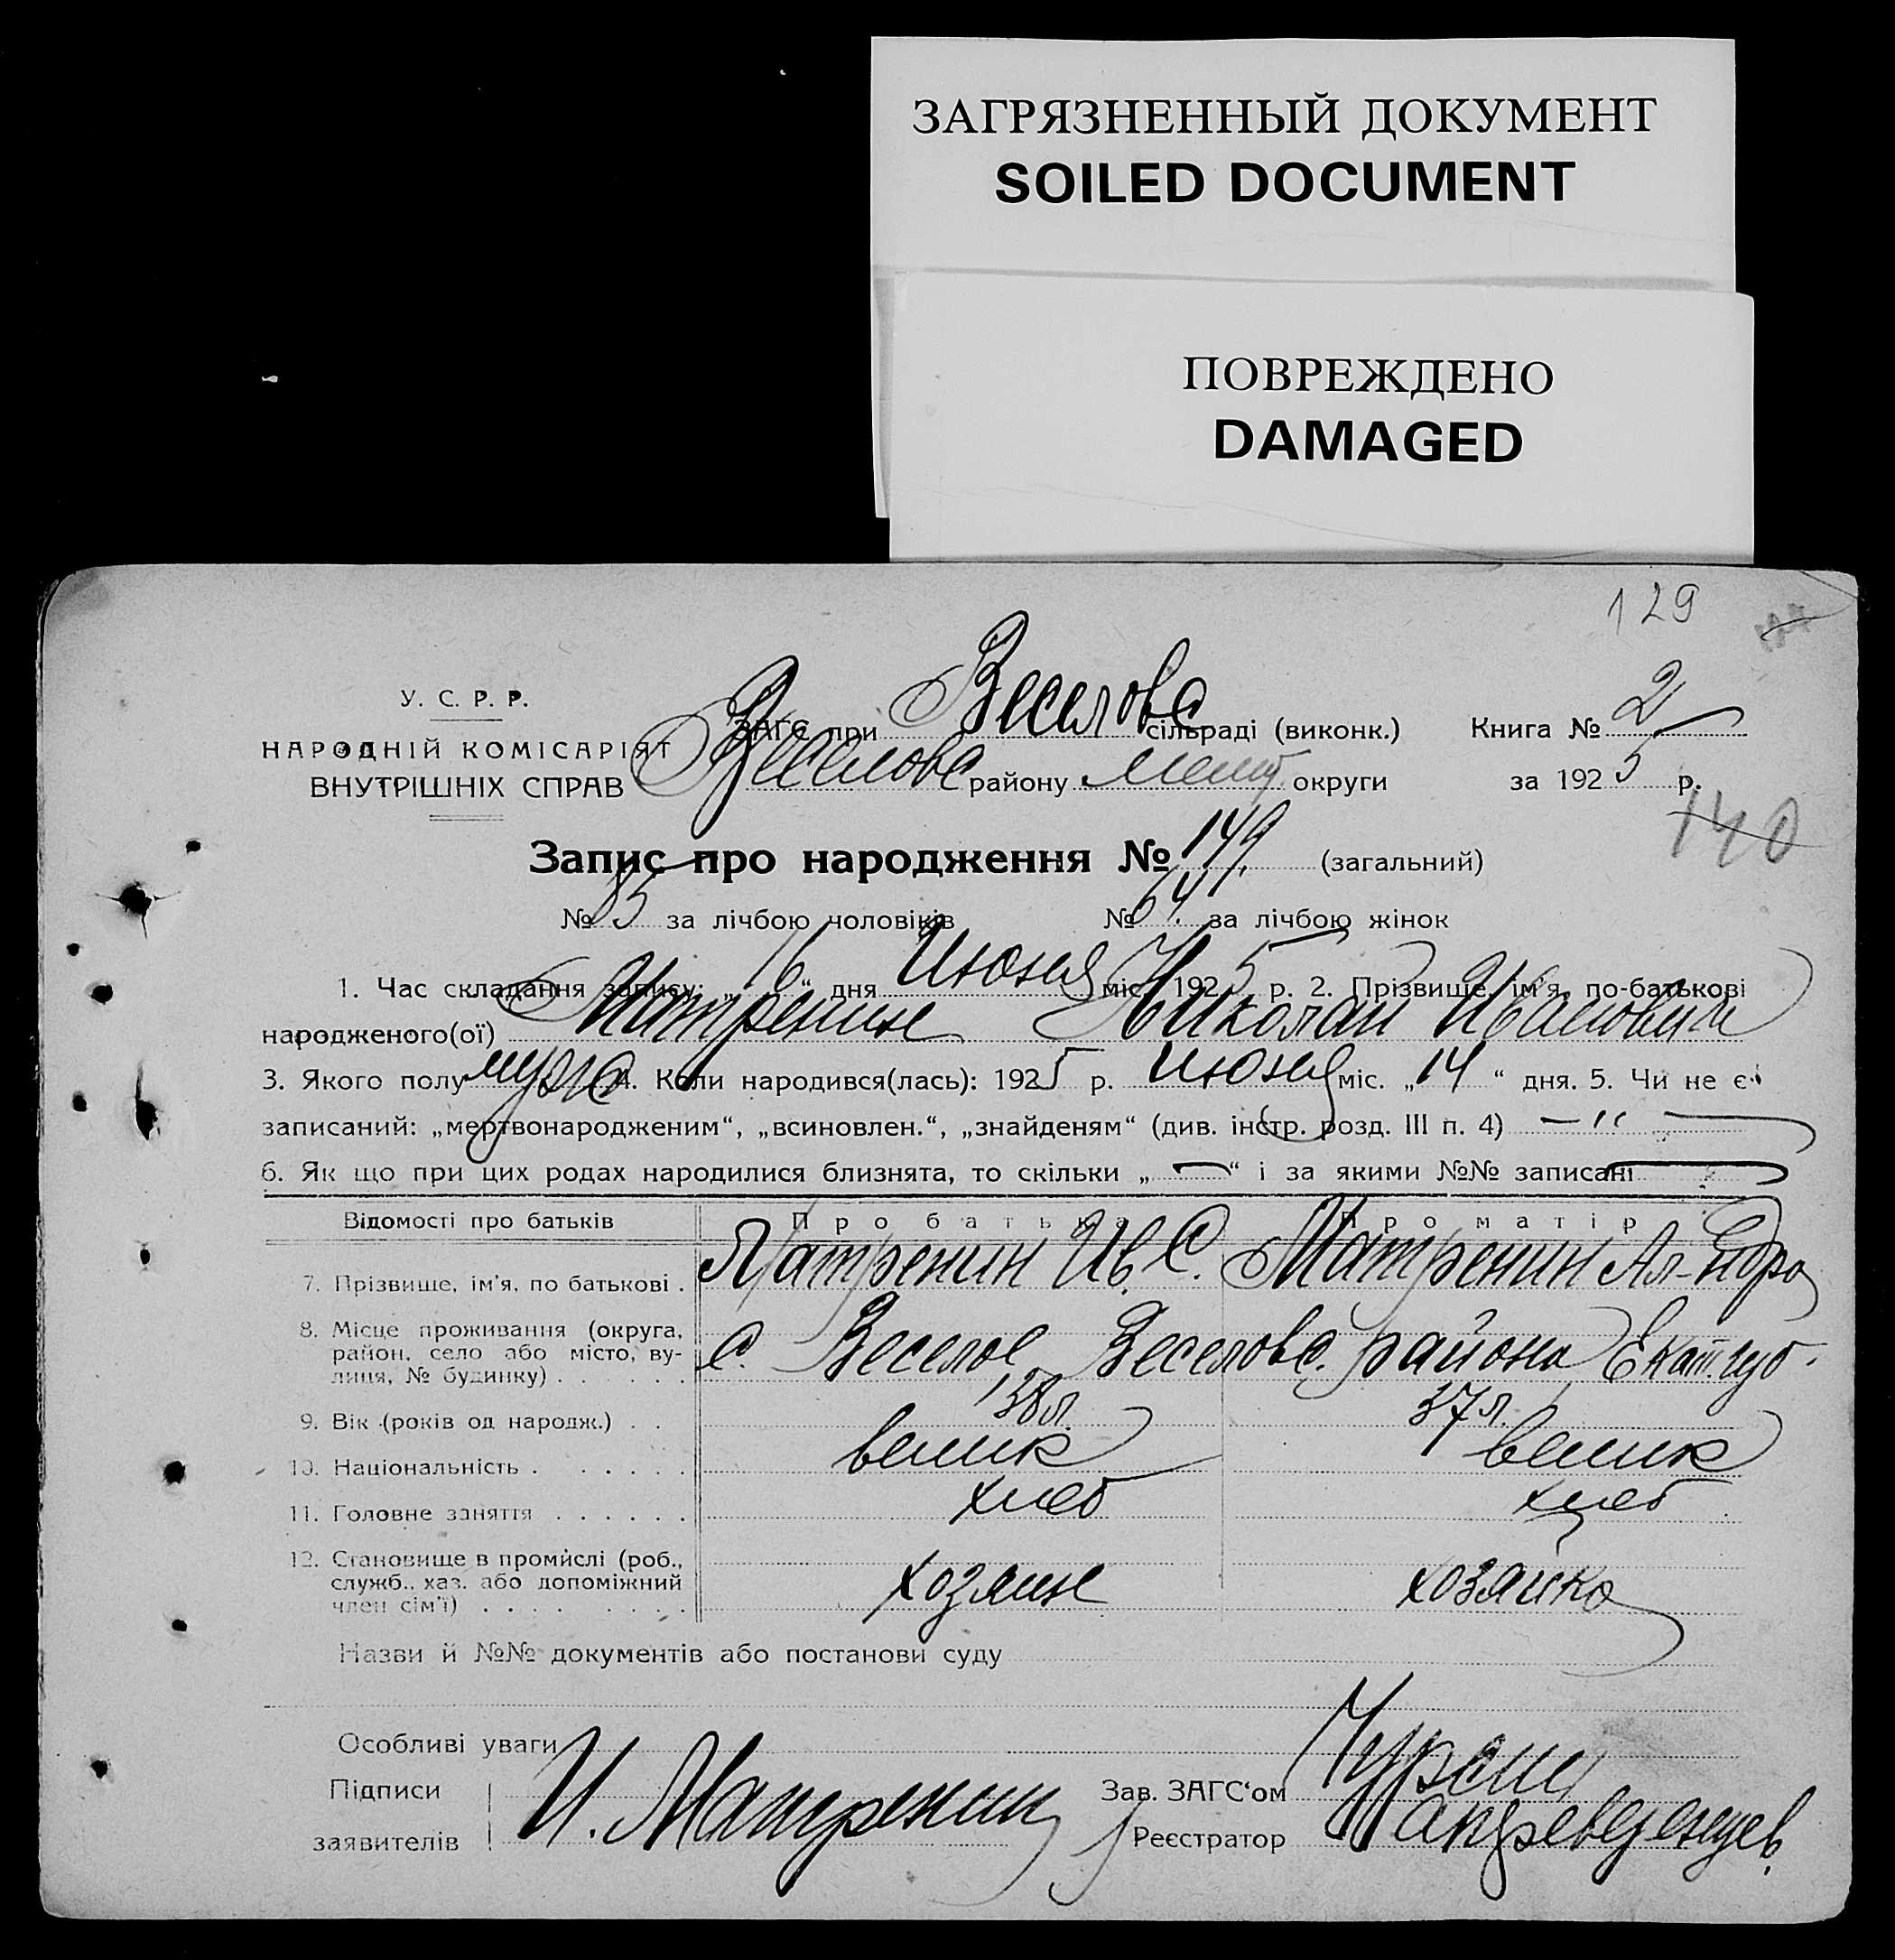 ЗАГРЯЗНЕННЫЙ ДОКУМЕНТ
SOILED DOCUMENT
ПОВРЕЖДЕНО
DAMAGED
129
У. С. Р. Р.
НАРОДНІЙ КОМІСАРІЯТ
ВНУТРІШНІХ СПРАВ
ЗАГС при Веселовс сільраді (виконк.) Книга № 2
Веселовс району Мелит округи за 1925 р.
140
Запис про народження № 149 (загальний)
№ 85 за лічбою чоловіків № 64 за лічбою жінок
1. Час складання запису: „16“ дня Июня міс. 1925 р. 2. Прізвище, ім'я, по-батькові
народженого(ої) Матренин Николай Иванович
3. Якого полу муж 4. Коли народився(лась): 1925 р. Июня міс. „14“ дня. 5. Чи не є
записаний: „мертвонародженим“, „всиновлен.“, „знайденям“ (див. інстр. розд. III п. 4) — „ —
6. Як що при цих родах народилися близнята, то скільки „—“ і за якими №№ записані —
Відомості про батьків Про батька Про матір
7. Прізвище, ім'я, по батькові . Матренин Ив. С. Матренин Ал-ндра
8. Місце проживання (округа, район, село або місто, вулиця, № будинку) . . . . . с. Веселое Веселовс. района Екат. губ.
9. Вік (років од народж.) . . 38 л. 37 л.
10. Національність . . . . . . велик велик
11. Головне заняття . . . . . . хлеб хлеб
12. Становище в промислі (роб., служб., хаз. або допоміжний член сім'ї) . . . . . . . хозяин хозяйка
Назви й №№ документів або постанови суду
Особливі уваги
Підписи
заявителів И. Матренин
Зав. ЗАГС‘ом
Реєстратор